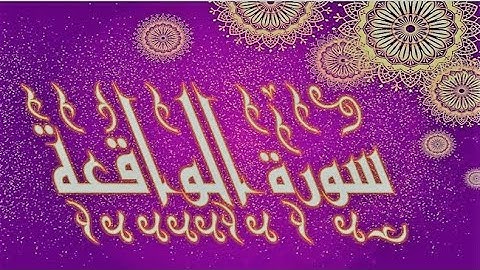 سورة الواقعة